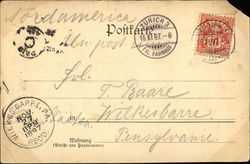 Nordamerica
Postkarte
ZÜRICH 5
16.XI.97.-6
FIL. BAHNHOF
T. Baare
Wilkesbarre
Pensylvanie.
WILKES BARRE, PA.
NOV
27
1897
REC'D.
Wohnung
(Strasse und Hausnummer)